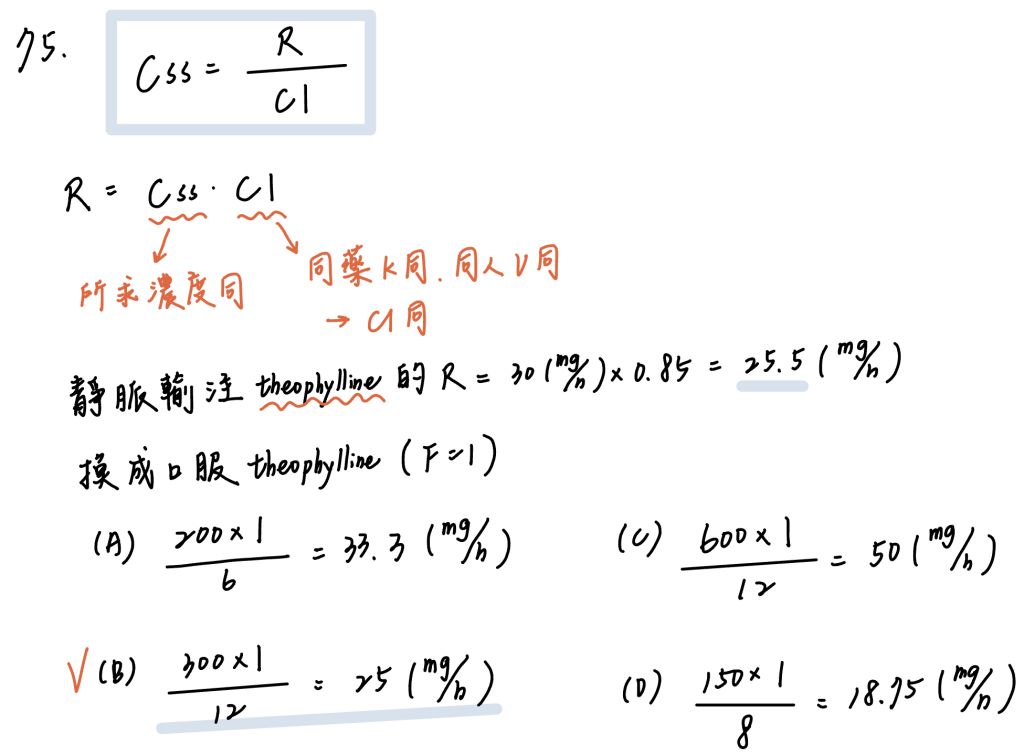 75.
Css = R / Cl
R = Css · Cl
所求濃度同
同藥 K同. 同人 V同
→ Cl 同
靜脈輸注 theophylline 的 R = 30 (mg/h) × 0.85 = 25.5 (mg/h)
換成口服 theophylline (F=1)
(A) 200×1 / 6 = 33.3 (mg/h)
(C) 600×1 / 12 = 50 (mg/h)
√ (B) 300×1 / 12 = 25 (mg/h)
(D) 150×1 / 8 = 18.75 (mg/h)